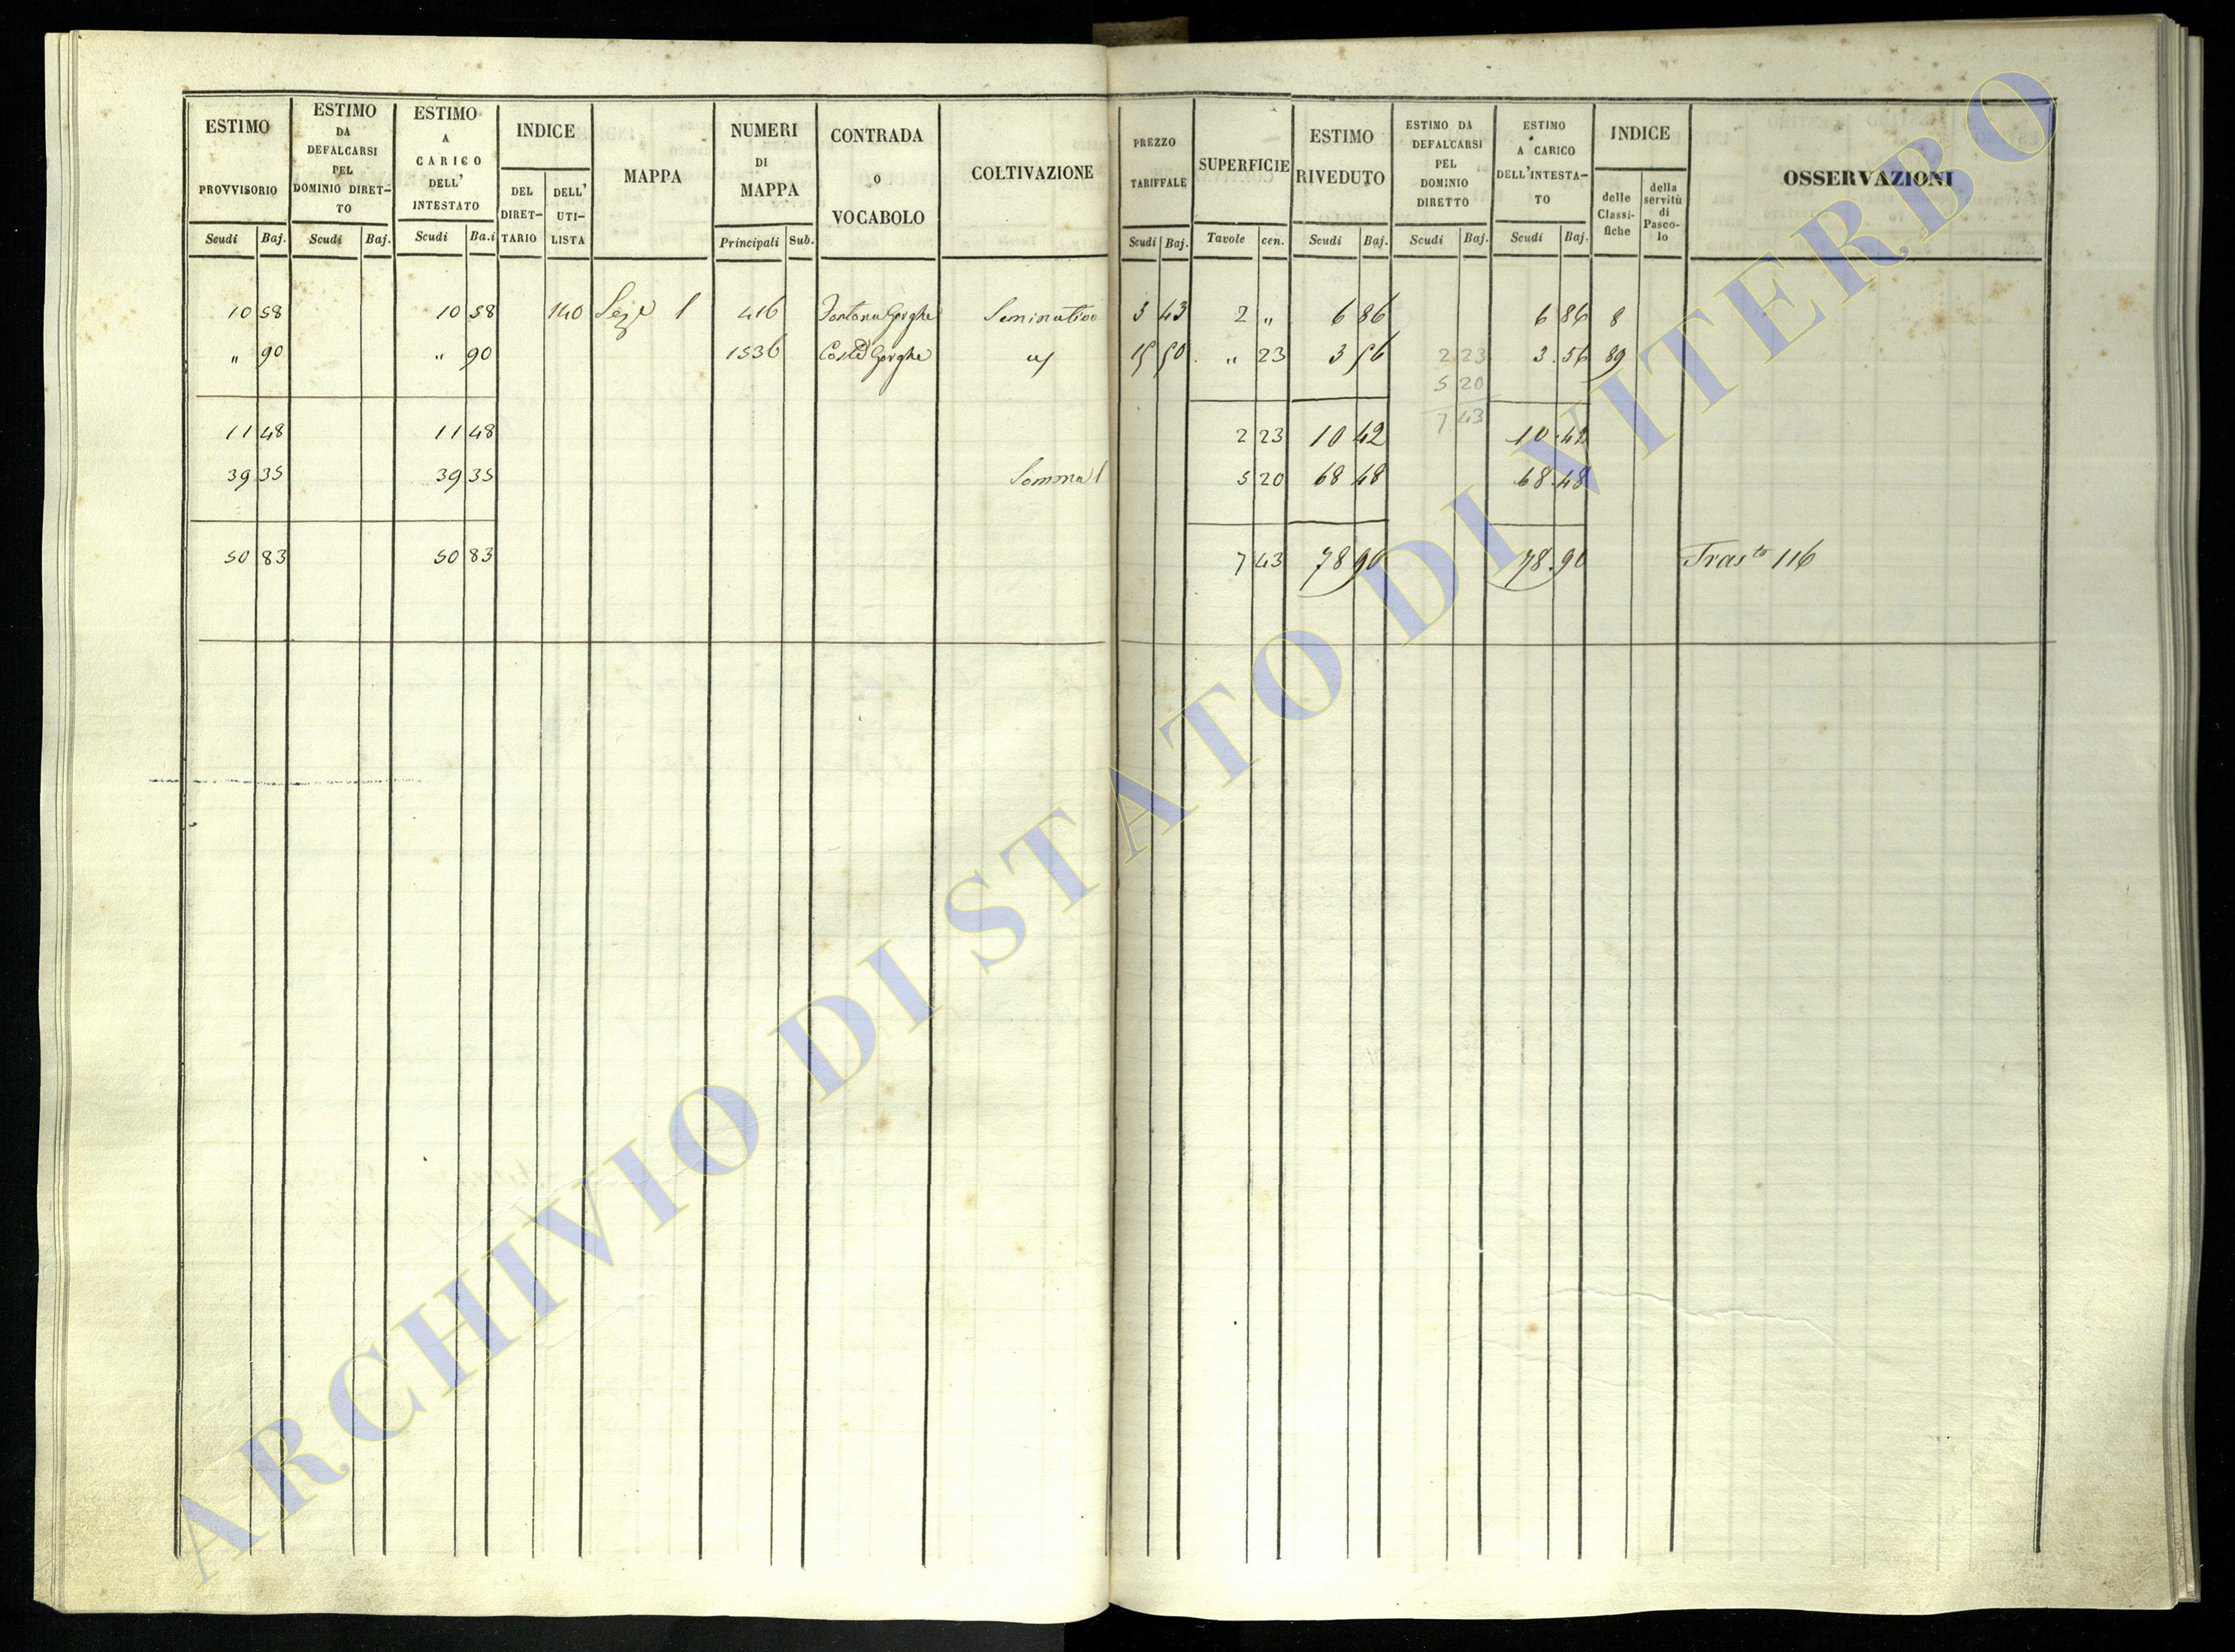 ESTIMO PROVVISORIO
Scudi Baj.
ESTIMO DA DEFALCARSI PEL DOMINIO DIRET-TO
Scudi Baj.
ESTIMO A CARICO DELL' INTESTATO
Scudi Ba.i
INDICE
DEL DIRET-TARIO
DELL' UTI-LISTA
MAPPA
NUMERI DI MAPPA
Principali Sub.
CONTRADA O VOCABOLO
COLTIVAZIONE
PREZZO TARIFFALE
Scudi Baj.
SUPERFICIE
Tavole cen.
ESTIMO RIVEDUTO
Scudi Baj.
ESTIMO DA DEFALCARSI PEL DOMINIO DIRETTO
Scudi Baj.
ESTIMO A CARICO DELL'INTESTA-TO
Scudi Baj.
INDICE
delle Classi-fiche
della servitù di Pasco-lo
OSSERVAZIONI
10 58 10 58 140 1 416 Fontana Gorghe Seminativo 3 43 2 " 6 86 6 86 8
" 90 " 90 1536 Gorghe 15 50 " 23 3 56 2 23 3.56 89
5 20
11 48 11 48 2 23 10 42 7 43 10.42
39 35 39 35 5 20 68 48 68.48
50 83 50 83 7 43 78 90 78.90 Trasto 116
ARCHIVIO DI STATO DI VITERBO